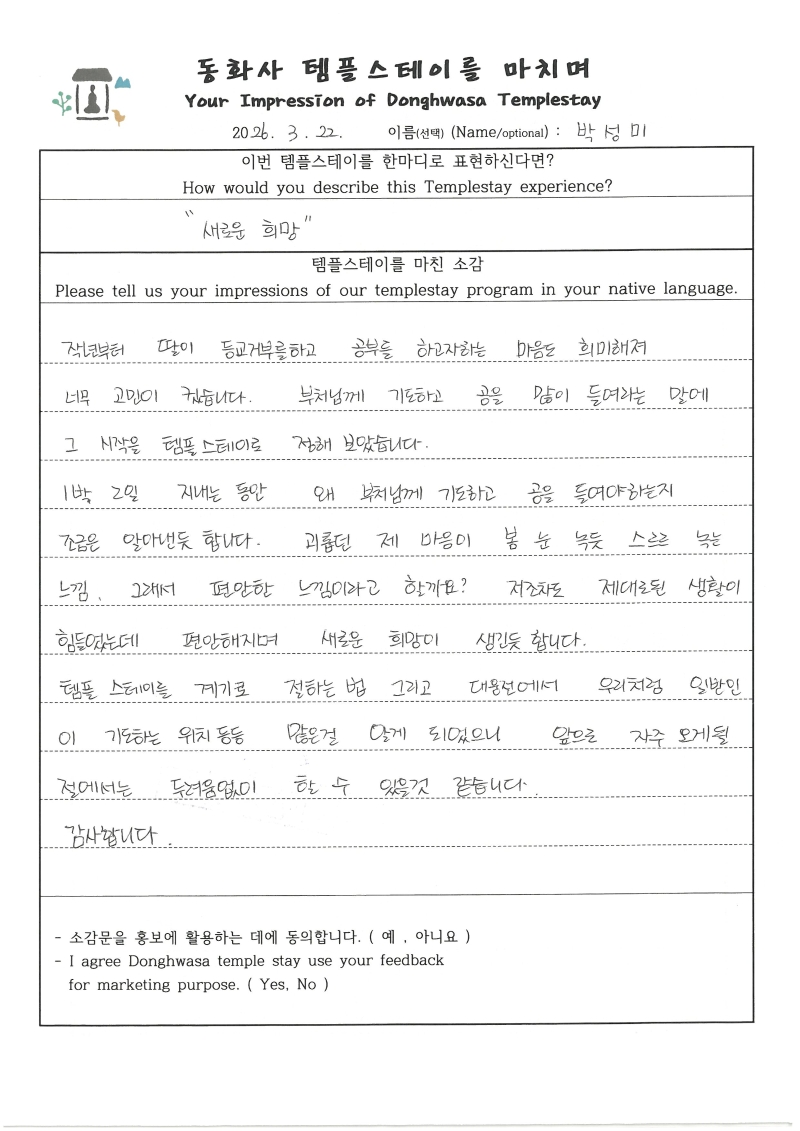 동화사 템플스테이를 마치며
Your Impression of Donghwasa Templestay
2026. 3. 22. 이름(선택) (Name/optional) : 박성미
이번 템플스테이를 한마디로 표현하신다면?
How would you describe this Templestay experience?
"새로운 희망"
템플스테이를 마친 소감
Please tell us your impressions of our templestay program in your native language.
작년부터 딸이 등교거부를하고 공부를 하고자하는 마음도 희미해져
너무 고민이 컸습니다. 부처님께 기도하고 공을 많이 들여라는 말에
그 시작을 템플스테이로 정해 보았습니다.
1박 2일 지내는 동안 왜 부처님께 기도하고 공을 들여야하는지
조금은 알아낸듯 합니다. 괴롭던 제 마음이 봄 눈 녹듯 스르르 녹는
느낌, 그래서 편안한 느낌이라고 할까요? 저조차도 제대로된 생활이
힘들었는데 편안해지며 새로운 희망이 생긴듯 합니다.
템플 스테이를 계기로 절하는 법 그리고 대웅전에서 우리처럼 일반인
이 기도하는 위치 등등 많은걸 알게 되었으니 앞으로 자주 오게될
절에서는 두려움없이 할 수 있을것 같습니다.
감사합니다.
- 소감문을 홍보에 활용하는 데에 동의합니다. ( 예 , 아니요 )
- I agree Donghwasa temple stay use your feedback
for marketing purpose. ( Yes, No )